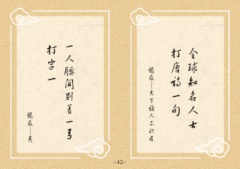 全球知名人士
打唐诗一句
谜底——天下谁人不识君
一人腰间别着一弓
打字一
谜底——夷
-42-